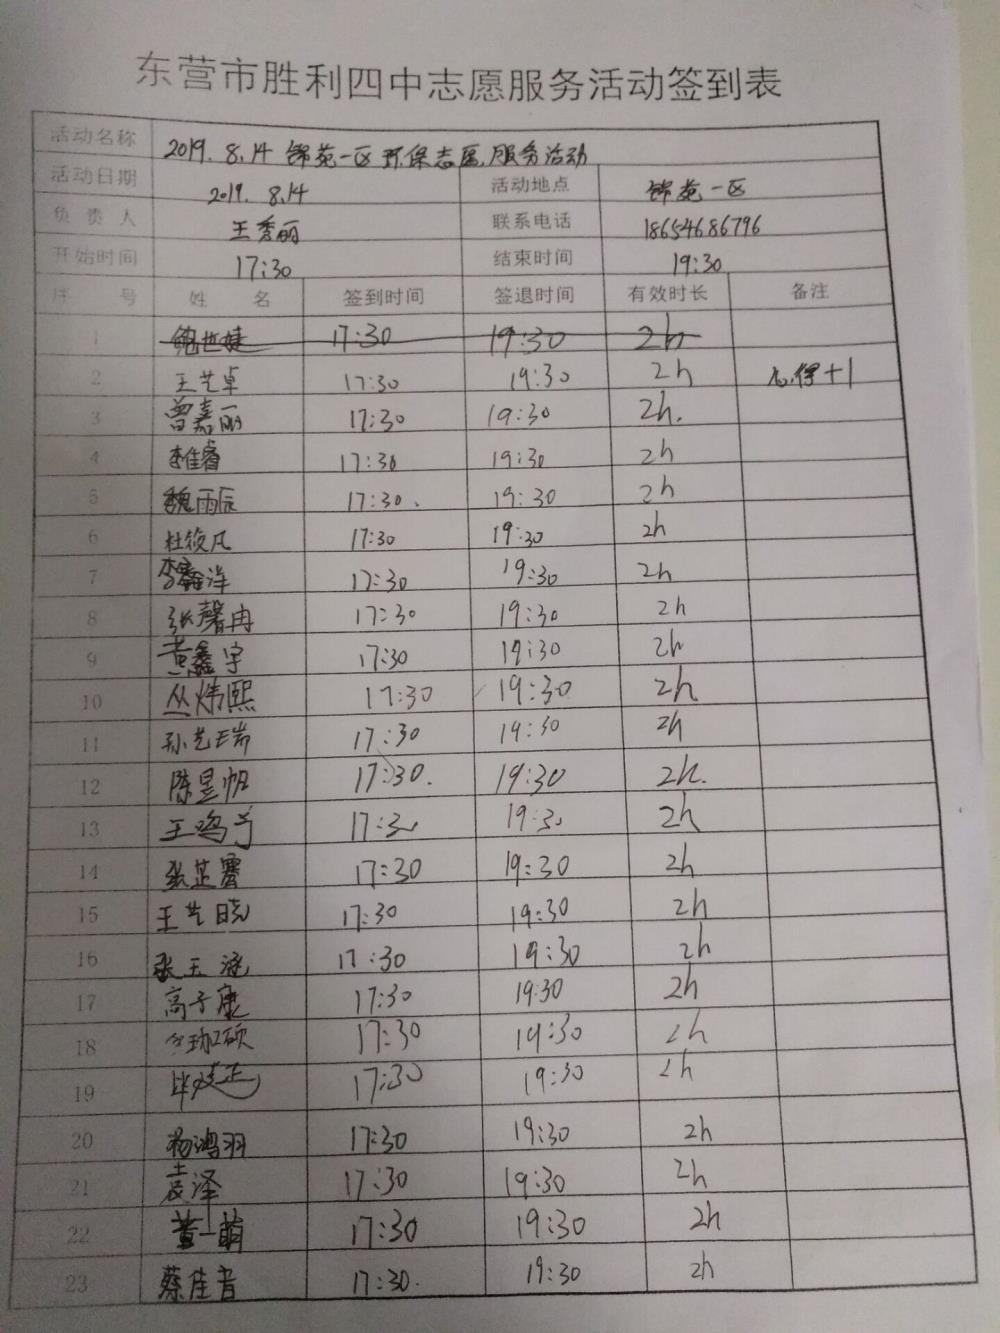 东营市胜利四中志愿服务活动签到表
活动名称 2019.8.14 锦苑一区环保志愿服务活动
活动日期 2019.8.14 活动地点 锦苑一区
负责人 王秀丽 联系电话 18654686796
开始时间 17:30 结束时间 19:30
序号 姓名 签到时间 签退时间 有效时长 备注
1 鲍世婕 17:30 19:30 2h
2 王艺卓 17:30 19:30 2h 心得+1
3 曾嘉丽 17:30 19:30 2h.
4 李佳睿 17:30 19:30 2h
5 魏雨辰 17:30. 19:30 2h
6 杜筱凡 17:30 19:30 2h
7 李鑫洋 17:30 19:30 2h
8 张馨冉 17:30 19:30 2h
9 黄鑫宇 17:30 19:30 2h
10 丛炜熙 17:30 19:30 2h
11 孙艺瑞 17:30 19:30 2h
12 陈昱帆 17:30. 19:30 2h.
13 王鸣 17:30 19:30 2h
14 张芷睿 17:30 19:30 2h
15 王艺晓 17:30 19:30 2h
16 张玉涵 17:30 19:30 2h
17 高子康 17:30 19:30 2h
18 17:30 19:30 2h
19 毕 17:30 19:30 2h
20 杨鸿羽 17:30 19:30 2h
21 袁泽 17:30 19:30 2h
22 董一萌 17:30 19:30 2h
23 蔡佳音 17:30. 19:30 2h